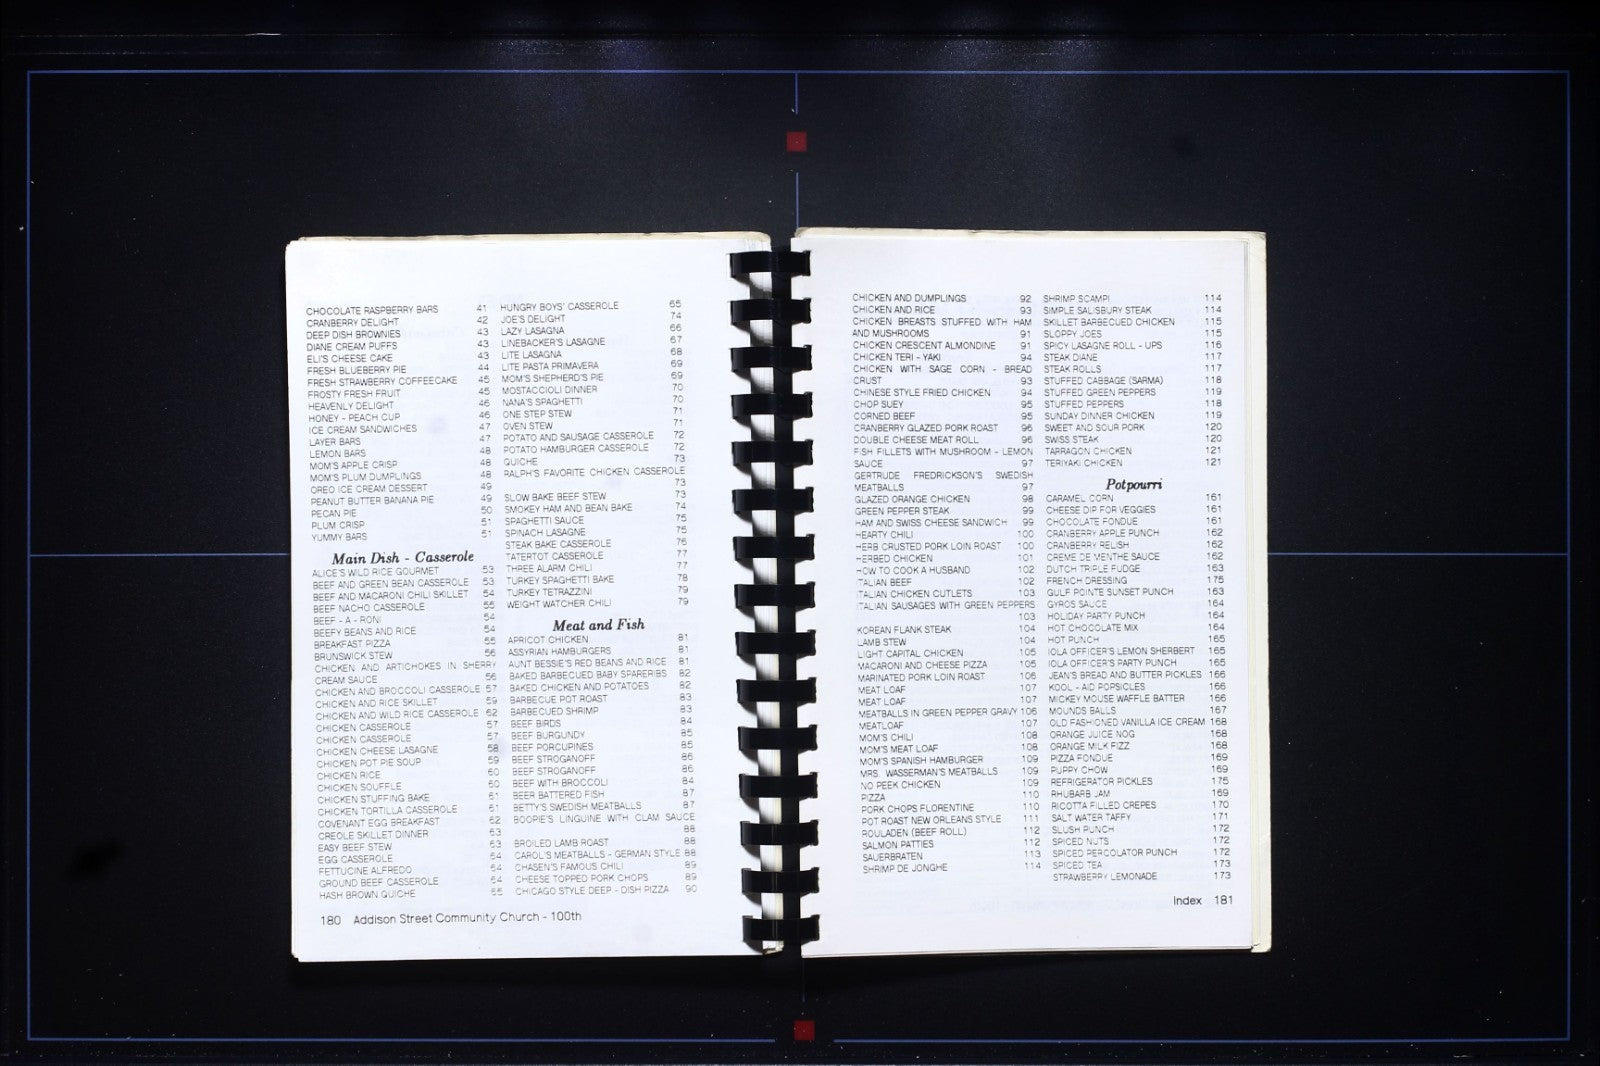 CHOCOLATE RASPBERRY BARS 41
CRANBERRY DELIGHT 42
DEEP DISH BROWNIES 43
DIANE CREAM PUFFS 43
ELI'S CHEESE CAKE 43
FRESH BLUEBERRY PIE 44
FRESH STRAWBERRY COFFEECAKE 45
FROSTY FRESH FRUIT 45
HEAVENLY DELIGHT 46
HONEY - PEACH CUP 46
ICE CREAM SANDWICHES 47
LAYER BARS 47
LEMON BARS 48
MOM'S APPLE CRISP 48
MOM'S PLUM DUMPLINGS 48
OREO ICE CREAM DESSERT 49
PEANUT BUTTER BANANA PIE 49
PECAN PIE 50
PLUM CRISP 51
YUMMY BARS 51
Main Dish - Casserole
ALICE'S WILD RICE GOURMET 53
BEEF AND GREEN BEAN CASSEROLE 53
BEEF AND MACARONI CHILI SKILLET 54
BEEF NACHO CASSEROLE 55
BEEF - A - RONI 54
BEEFY BEANS AND RICE 54
BREAKFAST PIZZA 55
BRUNSWICK STEW 56
CHICKEN AND ARTICHOKES IN SHERRY
CREAM SAUCE 56
CHICKEN AND BROCCOLI CASSEROLE 57
CHICKEN AND RICE SKILLET 59
CHICKEN AND WILD RICE CASSEROLE 62
CHICKEN CASSEROLE 57
CHICKEN CASSEROLE 57
CHICKEN CHEESE LASAGNE 58
CHICKEN POT PIE SOUP 59
CHICKEN RICE 60
CHICKEN SOUFFLE 60
CHICKEN STUFFING BAKE 61
CHICKEN TORTILLA CASSEROLE 61
COVENANT EGG BREAKFAST 62
CREOLE SKILLET DINNER 63
EASY BEEF STEW 63
EGG CASSEROLE 64
FETTUCINE ALFREDO 64
GROUND BEEF CASSEROLE 64
HASH BROWN QUICHE 65
HUNGRY BOYS' CASSEROLE 65
JOE'S DELIGHT 74
LAZY LASAGNA 66
LINEBACKER'S LASAGNE 67
LITE LASAGNA 68
LITE PASTA PRIMAVERA 69
MOM'S SHEPHERD'S PIE 69
MOSTACCIOLI DINNER 70
NANA'S SPAGHETTI 70
ONE STEP STEW 71
OVEN STEW 71
POTATO AND SAUSAGE CASSEROLE 72
POTATO HAMBURGER CASSEROLE 72
QUICHE 73
RALPH'S FAVORITE CHICKEN CASSEROLE
73
SLOW BAKE BEEF STEW 73
SMOKEY HAM AND BEAN BAKE 74
SPAGHETTI SAUCE 75
SPINACH LASAGNE 75
STEAK BAKE CASSEROLE 76
TATERTOT CASSEROLE 77
THREE ALARM CHILI 77
TURKEY SPAGHETTI BAKE 78
TURKEY TETRAZZINI 79
WEIGHT WATCHER CHILI 79
Meat and Fish
APRICOT CHICKEN 81
ASSYRIAN HAMBURGERS 81
AUNT BESSIE'S RED BEANS AND RICE 81
BAKED BARBECUED BABY SPARERIBS 82
BAKED CHICKEN AND POTATOES 82
BARBECUE POT ROAST 83
BARBECUED SHRIMP 83
BEEF BIRDS 84
BEEF BURGUNDY 85
BEEF PORCUPINES 85
BEEF STROGANOFF 86
BEEF STROGANOFF 86
BEEF WITH BROCCOLI 84
BEER BATTERED FISH 87
BETTY'S SWEDISH MEATBALLS 87
BOOPIE'S LINGUINE WITH CLAM SAUCE
88
BROILED LAMB ROAST 88
CAROL'S MEATBALLS - GERMAN STYLE 88
CHASEN'S FAMOUS CHILI 89
CHEESE TOPPED PORK CHOPS 89
CHICAGO STYLE DEEP - DISH PIZZA 90
180 Addison Street Community Church - 100th
CHICKEN AND DUMPLINGS 92
CHICKEN AND RICE 93
CHICKEN BREASTS STUFFED WITH HAM
AND MUSHROOMS 91
CHICKEN CRESCENT ALMONDINE 91
CHICKEN TERI - YAKI 94
CHICKEN WITH SAGE CORN - BREAD
CRUST 93
CHINESE STYLE FRIED CHICKEN 94
CHOP SUEY 95
CORNED BEEF 95
CRANBERRY GLAZED PORK ROAST 96
DOUBLE CHEESE MEAT ROLL 96
FISH FILLETS WITH MUSHROOM - LEMON
SAUCE 97
GERTRUDE FREDRICKSON'S SWEDISH
MEATBALLS 97
GLAZED ORANGE CHICKEN 98
GREEN PEPPER STEAK 99
HAM AND SWISS CHEESE SANDWICH 99
HEARTY CHILI 100
HERB CRUSTED PORK LOIN ROAST 100
HERBED CHICKEN 101
HOW TO COOK A HUSBAND 102
ITALIAN BEEF 102
ITALIAN CHICKEN CUTLETS 103
ITALIAN SAUSAGES WITH GREEN PEPPERS
103
KOREAN FLANK STEAK 104
LAMB STEW 104
LIGHT CAPITAL CHICKEN 105
MACARONI AND CHEESE PIZZA 105
MARINATED PORK LOIN ROAST 106
MEAT LOAF 107
MEAT LOAF 107
MEATBALLS IN GREEN PEPPER GRAVY 106
MEATLOAF 107
MOM'S CHILI 108
MOM'S MEAT LOAF 108
MOM'S SPANISH HAMBURGER 109
MRS. WASSERMAN'S MEATBALLS 109
NO PEEK CHICKEN 109
PIZZA 110
PORK CHOPS FLORENTINE 110
POT ROAST NEW ORLEANS STYLE 111
ROULADEN (BEEF ROLL) 112
SALMON PATTIES 112
SAUERBRATEN 113
SHRIMP DE JONGHE 114
SHRIMP SCAMPI 114
SIMPLE SALISBURY STEAK 114
SKILLET BARBECUED CHICKEN 115
SLOPPY JOES 115
SPICY LASAGNE ROLL - UPS 116
STEAK DIANE 117
STEAK ROLLS 117
STUFFED CABBAGE (SARMA) 118
STUFFED GREEN PEPPERS 119
STUFFED PEPPERS 118
SUNDAY DINNER CHICKEN 119
SWEET AND SOUR PORK 120
SWISS STEAK 120
TARRAGON CHICKEN 121
TERIYAKI CHICKEN 121
Potpourri
CARAMEL CORN 161
CHEESE DIP FOR VEGGIES 161
CHOCOLATE FONDUE 161
CRANBERRY APPLE PUNCH 162
CRANBERRY RELISH 162
CREME DE MENTHE SAUCE 162
DUTCH TRIPLE FUDGE 163
FRENCH DRESSING 175
GULF POINTE SUNSET PUNCH 163
GYROS SAUCE 164
HOLIDAY PARTY PUNCH 164
HOT CHOCOLATE MIX 164
HOT PUNCH 165
IOLA OFFICER'S LEMON SHERBERT 165
IOLA OFFICER'S PARTY PUNCH 165
JEAN'S BREAD AND BUTTER PICKLES 166
KOOL - AID POPSICLES 166
MICKEY MOUSE WAFFLE BATTER 166
MOUNDS BALLS 167
OLD FASHIONED VANILLA ICE CREAM 168
ORANGE JUICE NOG 168
ORANGE MILK FIZZ 168
PIZZA FONDUE 169
PUPPY CHOW 169
REFRIGERATOR PICKLES 175
RHUBARB JAM 169
RICOTTA FILLED CREPES 170
SALT WATER TAFFY 171
SLUSH PUNCH 172
SPICED NUTS 172
SPICED PERCOLATOR PUNCH 172
SPICED TEA 173
STRAWBERRY LEMONADE 173
Index 181